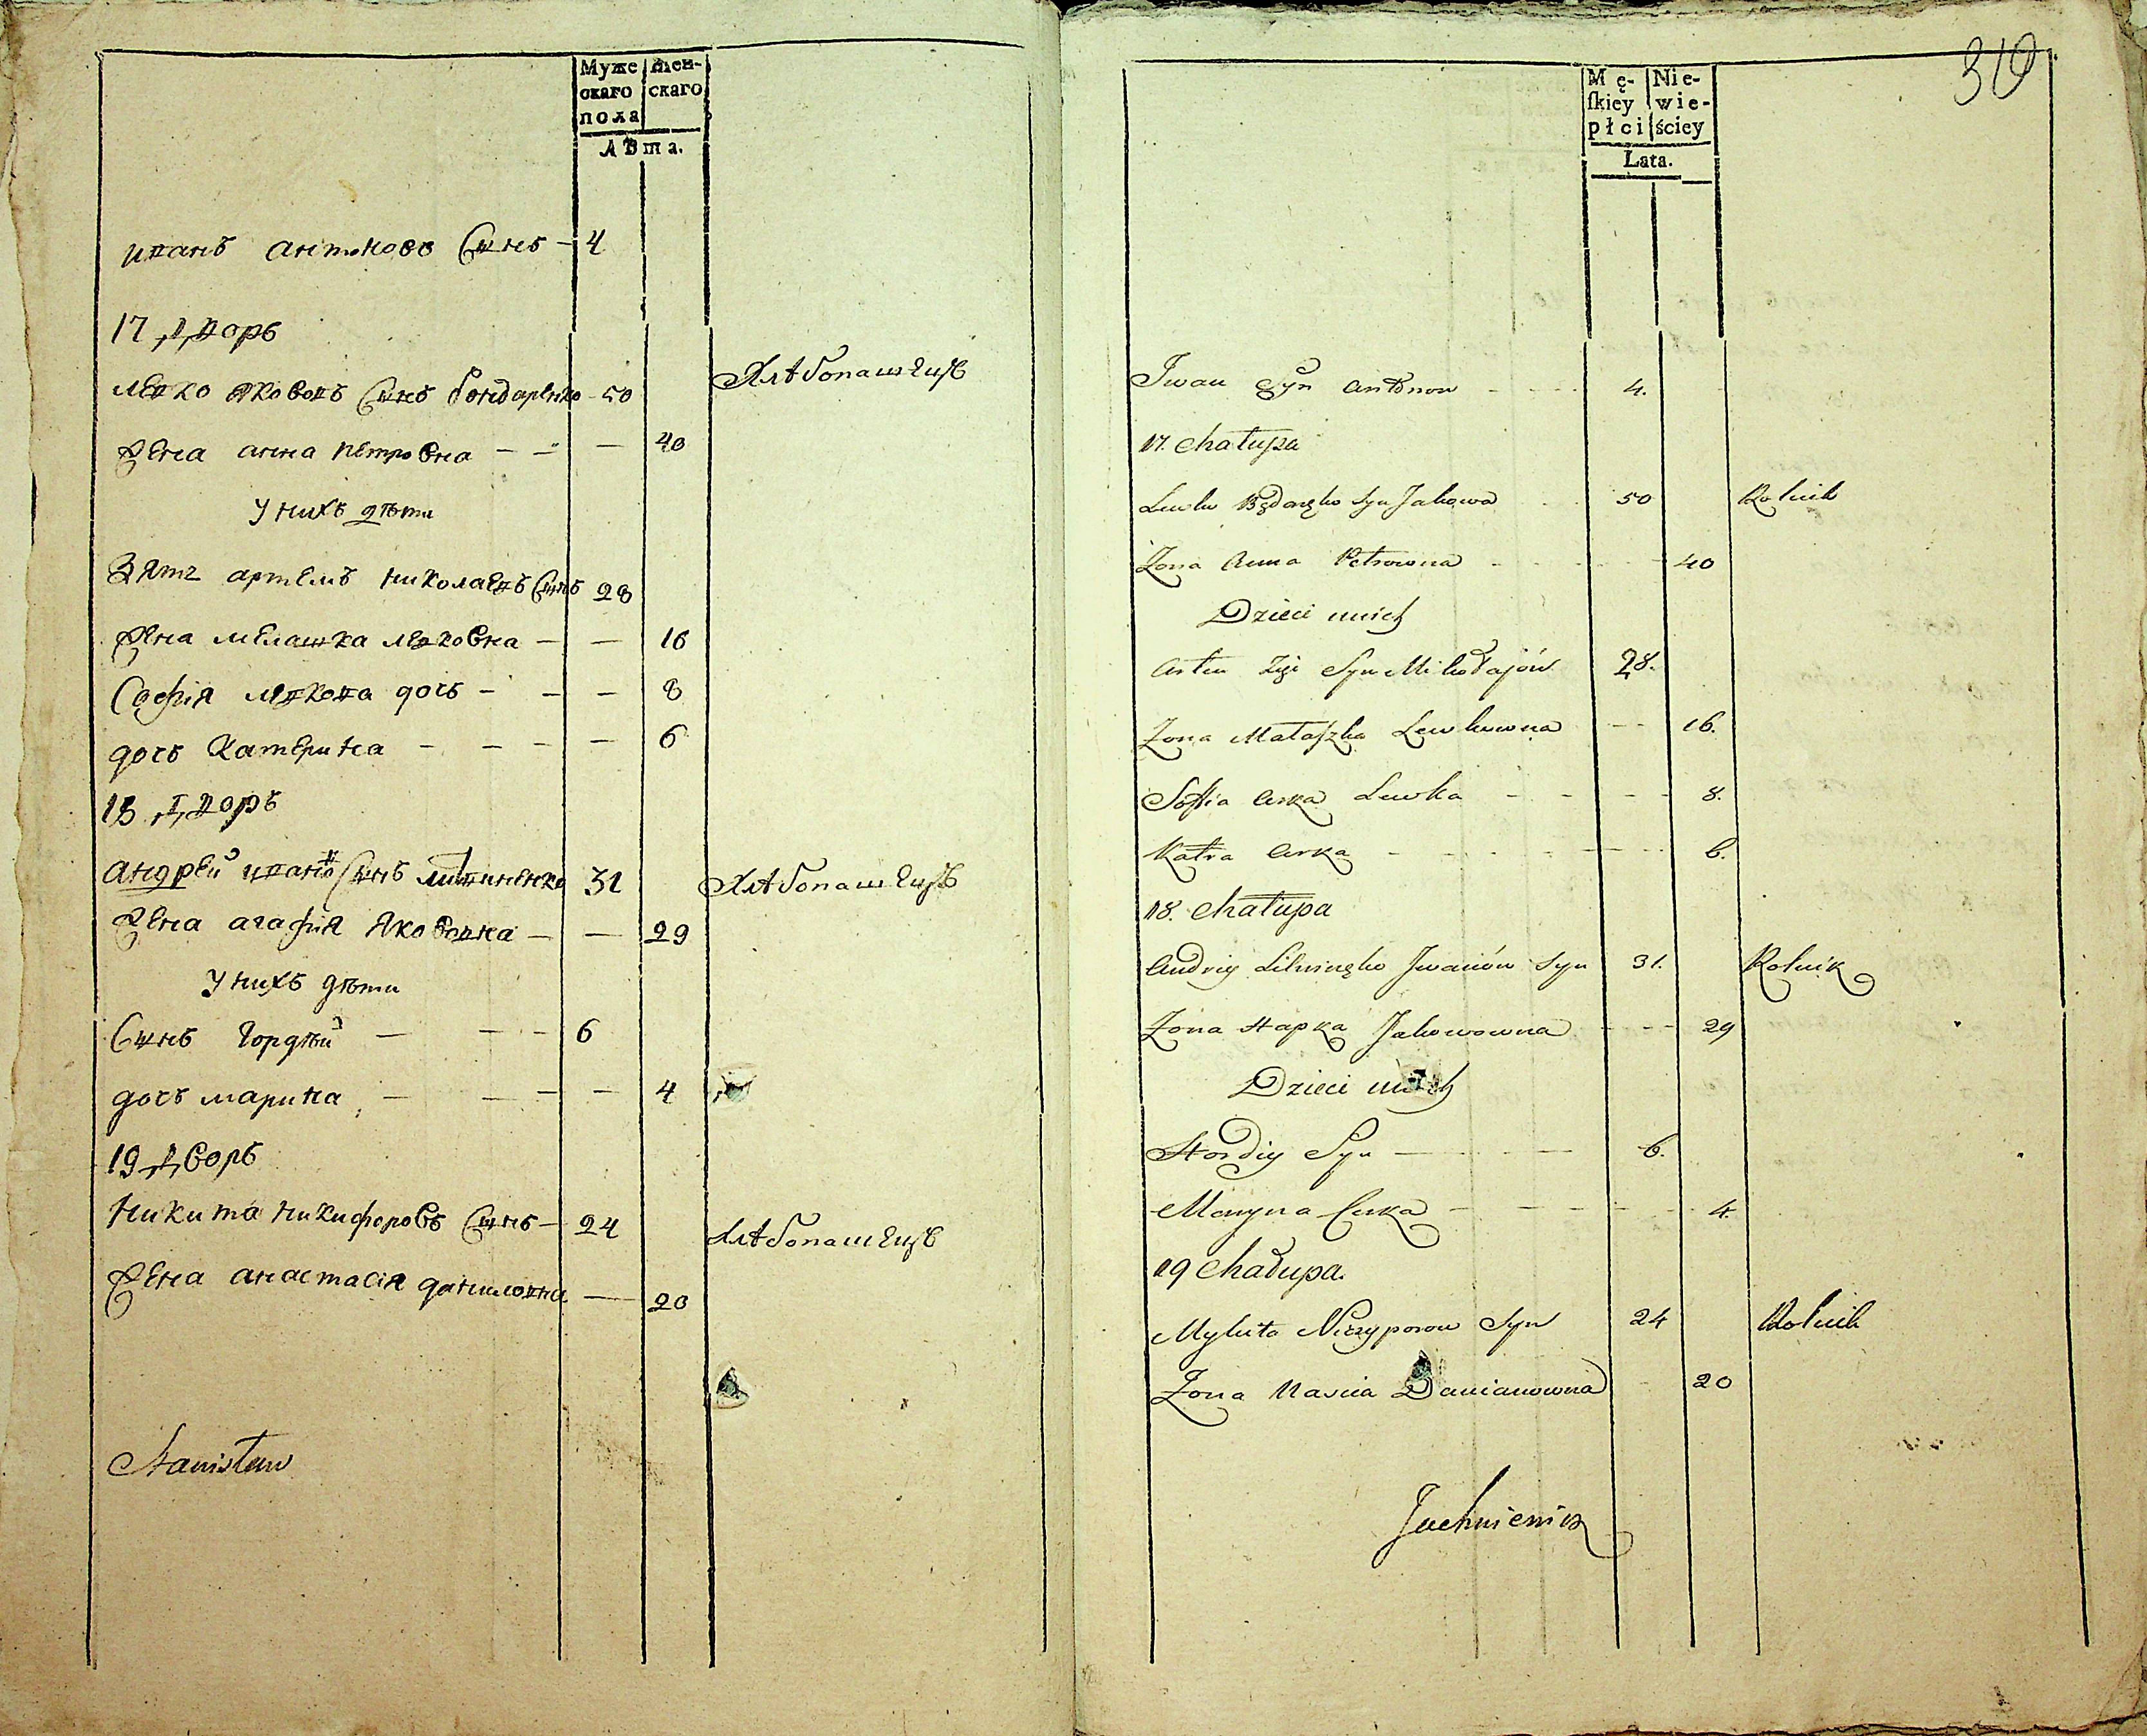 Муже скаго пола
Жен- скаго
Лѣта.
иванъ антоновъ Сынъ - 4
17 Дворъ
левко якововъ Сынъ бондаренко - 50 Хлѣбопашецъ
жена анна петровна - - - 40
У нихъ дѣти
Зять артемъ николаевъ Сынъ 28
жена мелашка левковна - - 16
Софія левкова дочь - - - 8
дочь Катерина - - - - 6
18 Дворъ
андрей ивановъ Сынъ 31 Хлѣбопашецъ
жена агафія Якововна - - 29
У нихъ дѣти
Сынъ Гордѣй - - - 6
дочь марина - - - - 4
19 Дворъ
Никита никифоровъ Сынъ - 24 Хлѣбопашецъ
жена анастасія даниловна - 20
Stanisław
310
Mę- ſkiey płci
Nie- wie- ściey
Lata.
Jwan Syn Antonow - - - 4.
17. Chałupa
Lewko Będaręko Syn Jakowa 50 Rolnik
Żona Anna Petrowna - - - 40
Dzieci unich
Artem Zięć Syn Mikołajów 28.
Żona Małaszka Lewkowna - - 16.
Soffia Curka Lewka - - - - 8.
Katra Curka - - - - - 6.
18. Chałupa
Andriy Jwanów Syn 31. Rolnik
Żona Hapka Jakowowna - - - 29
Dzieci unich
Hordiy Syn - - - 6.
Maryna Curka - - - - - 4.
19 Chałupa.
Mykita Niczyporow Syn 24 Rolnik
Żona Nascia Damianowna - 20
Juchniewicz